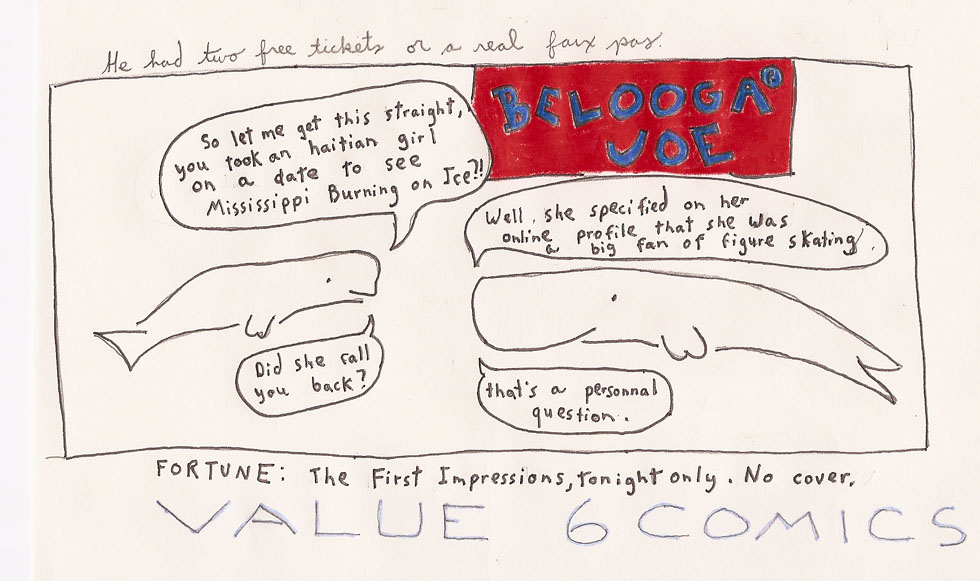 He had two free tickets or a real faux pas.
BELOOGA®
JOE
So let me get this straight,
you took an haitian girl
on a date to see
Mississippi Burning on Ice?!!
Well, she specified on her
online profile that she was
a big fan of figure skating.
Did she call
you back?
that's a personnal
question.
FORTUNE: The First Impressions, tonight only. No cover.
VALUE 6 COMICS